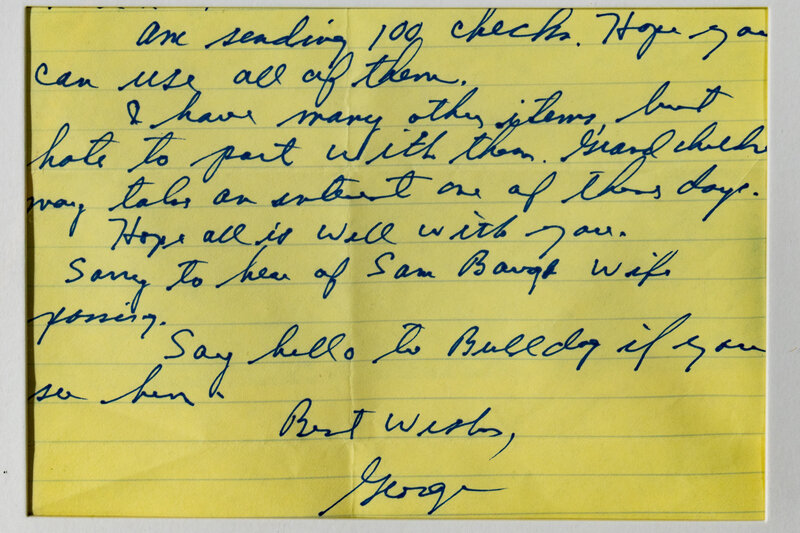 am sending 100 checks. Hope you
can use all of them.
I have many other items, but
hate to part with them. Grand childre
may take an interest one of these days.
Hope all is well with you.
Sorry to hear of Sam Baugh wife
passing.
Say hello to Bulldog if you
see him.
Best Wishes,
George